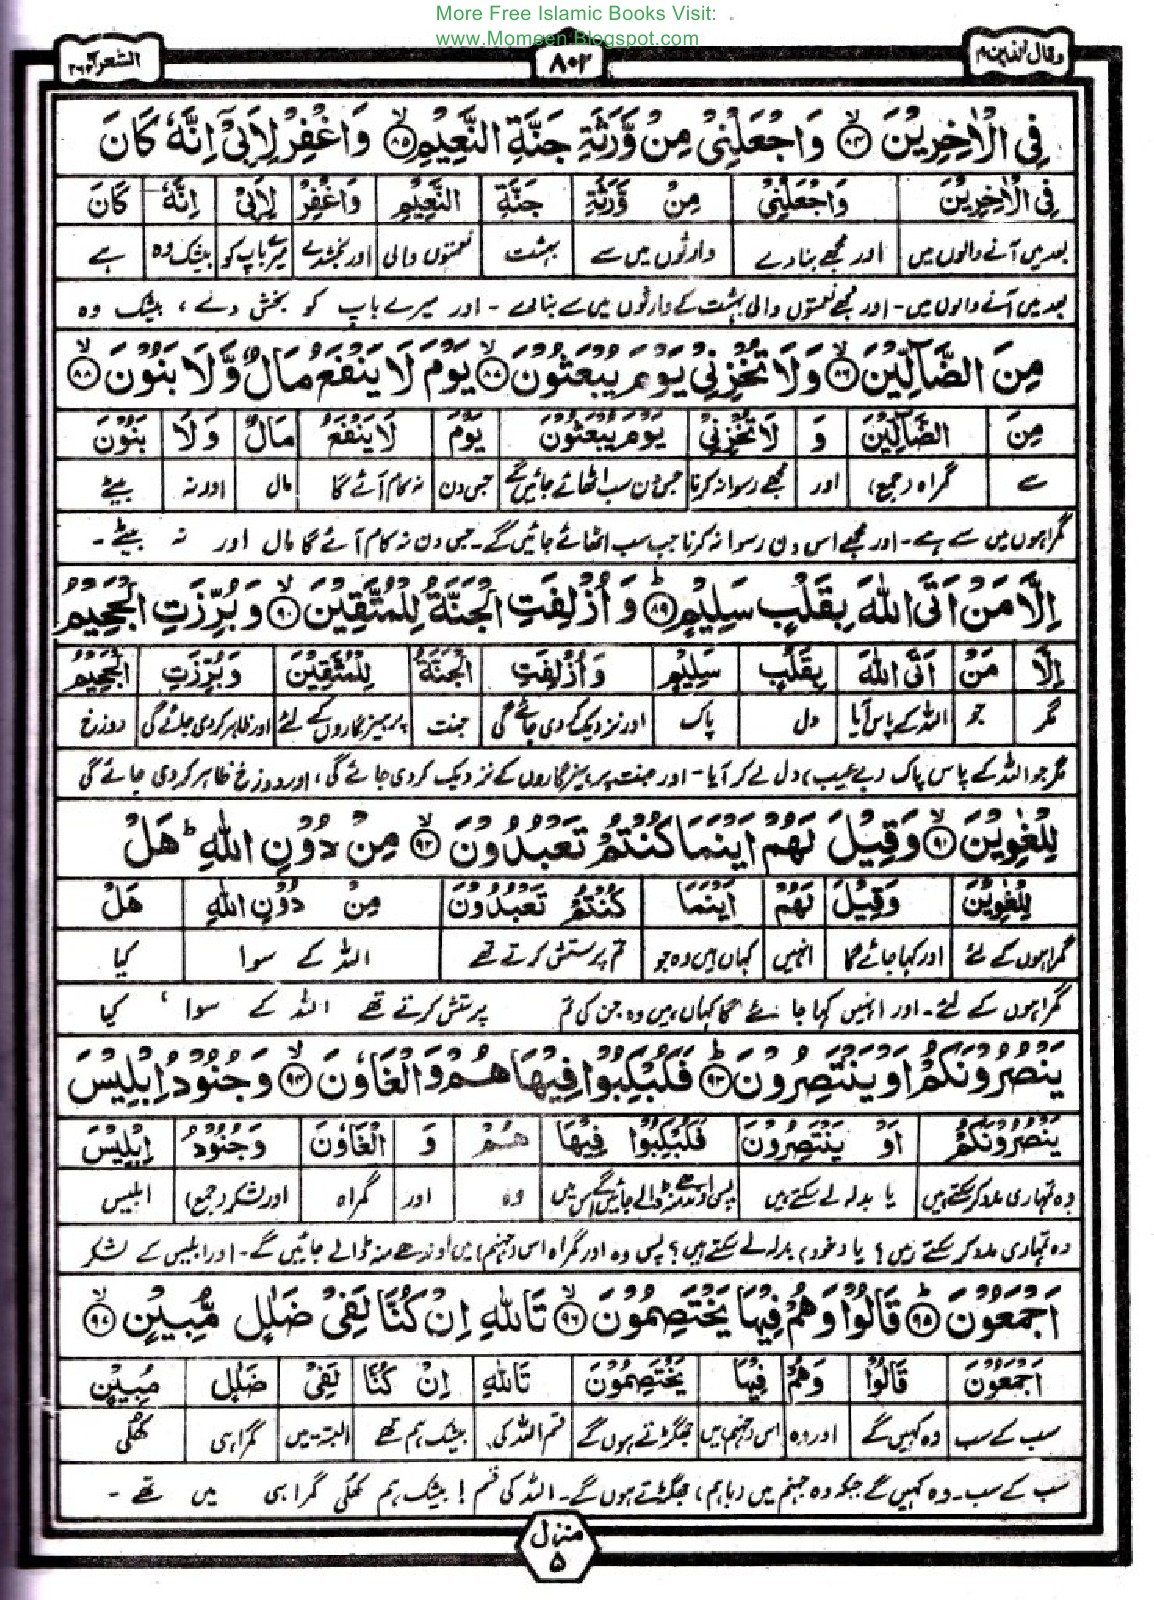 More Free Islamic Books Visit:
www.Momeen.Blogspot.com
وقال الذین ۱۹
۸۰۲
الشعرآء ۲۶
فِی الْاٰخِرِیْنَ ۸۴ وَاجْعَلْنِیْ مِنْ وَّرَثَةِ جَنَّةِ النَّعِیْمِ ۸۵ وَاغْفِرْ لِاَبِیْ اِنَّهٗ كَانَ
فِی الْاٰخِرِیْنَ وَاجْعَلْنِیْ مِنْ وَّرَثَةِ جَنَّةِ النَّعِیْمِ وَاغْفِرْ لِاَبِیْ اِنَّهٗ كَانَ
بعد میں آنے والوں میں اور مجھے بنا دے وارثوں میں سے بہشت نعمتوں والی اور بخشدے میرے باپ کو بیشک وہ ہے
بعد میں آنے والوں میں - اور مجھے نعمتوں والی بہشت کے وارثوں میں سے بنا دے - اور میرے باپ کو بخش دے ، بیشک وہ
مِنَ الضَّآلِّیْنَ ۸۶ وَلَا تُخْزِنِیْ یَوْمَ یُبْعَثُوْنَ ۸۷ یَوْمَ لَا یَنْفَعُ مَالٌ وَّلَا بَنُوْنَ ۸۸
مِنَ الضَّآلِّیْنَ وَ لَا تُخْزِنِیْ یَوْمَ یُبْعَثُوْنَ یَوْمَ لَا یَنْفَعُ مَالٌ وَلَا بَنُوْنَ
سے گمراہ (جمع) اور مجھے رسوا نہ کرنا جس دن سب اٹھائے جائیں گے جس دن نہ کام آئے گا مال اور نہ بیٹے
گمراہوں میں سے ہے - اور مجھے اس دن رسوا نہ کرنا جب سب اٹھائے جائیں گے - جس دن نہ کام آئے گا مال اور نہ بیٹے -
اِلَّا مَنْ اَتَی اللّٰهَ بِقَلْبٍ سَلِیْمٍ ۸۹ وَاُزْلِفَتِ الْجَنَّةُ لِلْمُتَّقِیْنَ ۹۰ وَبُرِّزَتِ الْجَحِیْمُ
اِلَّا مَنْ اَتَی اللّٰهَ بِقَلْبٍ سَلِیْمٍ وَاُزْلِفَتِ الْجَنَّةُ لِلْمُتَّقِیْنَ وَبُرِّزَتِ الْجَحِیْمُ
مگر جو اللہ کے پاس آیا دل پاک اور نزدیک کردی جائے گی جنت پرہیزگاروں کے لئے اور ظاہر کردی جائے گی دوزخ
مگر جو اللہ کے پاس پاک (بے عیب) دل لے کر آیا - اور جنت پرہیزگاروں کے نزدیک کردی جائے گی ، اور دوزخ ظاہر کردی جائے گی
لِلْغٰوِیْنَ ۹۱ وَقِیْلَ لَهُمْ اَیْنَمَا كُنْتُمْ تَعْبُدُوْنَ ۹۲ مِنْ دُوْنِ اللّٰهِ ؕ هَلْ
لِلْغٰوِیْنَ وَقِیْلَ لَهُمْ اَیْنَمَا كُنْتُمْ تَعْبُدُوْنَ مِنْ دُوْنِ اللّٰهِ هَلْ
گمراہوں کے لئے اور کہا جائے گا انہیں کہاں ہیں وہ جو تم پرستش کرتے تھے اللہ کے سوا کیا
گمراہوں کے لئے - اور انہیں کہا جائے گا کہاں ہیں وہ جن کی تم پرستش کرتے تھے اللہ کے سوا ، کیا
یَنْصُرُوْنَكُمْ اَوْ یَنْتَصِرُوْنَ ۹۳ فَكُبْكِبُوْا فِیْهَا هُمْ وَالْغَاوٗنَ ۹۴ وَجُنُوْدُ اِبْلِیْسَ
یَنْصُرُوْنَكُمْ اَوْ یَنْتَصِرُوْنَ فَكُبْكِبُوْا فِیْهَا هُمْ وَ الْغَاوٗنَ وَجُنُوْدُ اِبْلِیْسَ
وہ تمہاری مدد کرسکتے ہیں یا بدلہ لے سکتے ہیں پس اوندھے منہ ڈالے جائیں گے اس میں وہ اور گمراہ اور لشکر (جمع) ابلیس
وہ تمہاری مدد کرسکتے ہیں ؟ یا (خود) بدلہ لے سکتے ہیں ؟ پس وہ اور گمراہ اس (جہنم) میں اوندھے منہ ڈالے جائیں گے - اور ابلیس کے لشکر
اَجْمَعُوْنَ ۹۵ قَالُوْا وَهُمْ فِیْهَا یَخْتَصِمُوْنَ ۹۶ تَاللّٰهِ اِنْ كُنَّا لَفِیْ ضَلٰلٍ مُّبِیْنٍ ۹۷
اَجْمَعُوْنَ قَالُوْا وَهُمْ فِیْهَا یَخْتَصِمُوْنَ تَاللّٰهِ اِنْ كُنَّا لَفِیْ ضَلٰلٍ مُبِیْنٍ
سب کے سب وہ کہیں گے اور وہ اس (جہنم) میں جھگڑتے ہوں گے قسم اللہ کی بیشک ہم تھے البتہ میں گمراہی کھلی
سب کے سب - وہ کہیں گے جبکہ وہ جہنم میں (باہم) جھگڑتے ہوں گے - اللہ کی قسم ! بیشک ہم کھلی گمراہی میں تھے -
منزل
۵